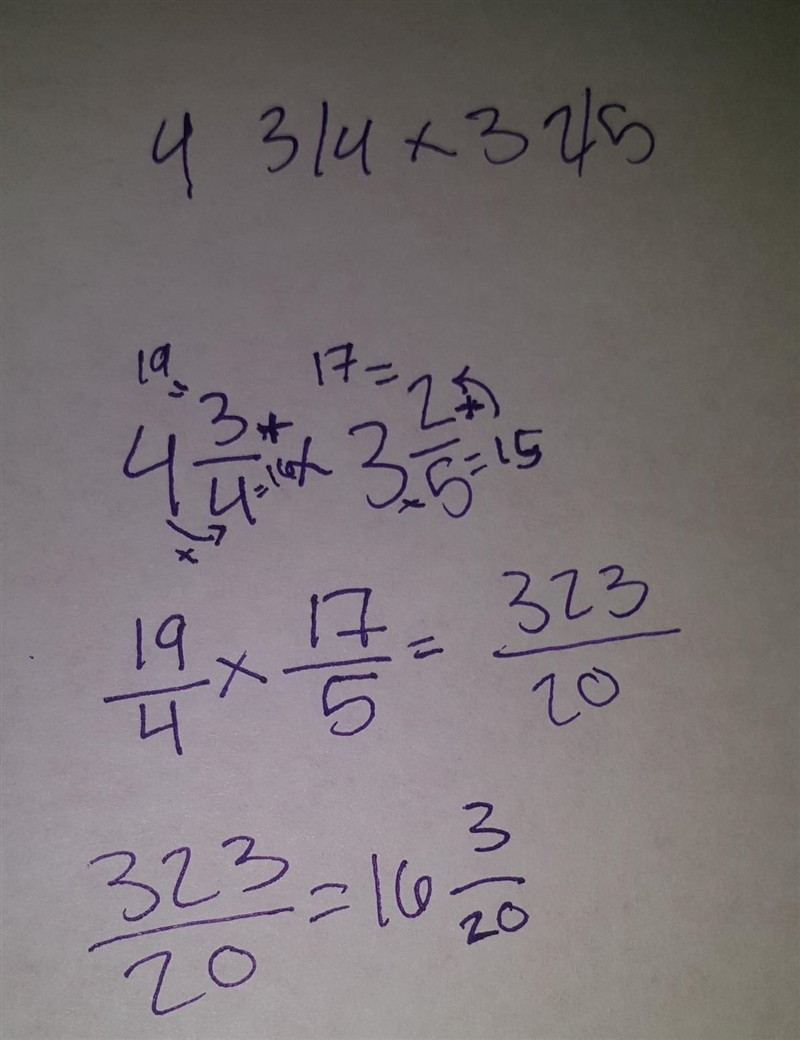 4 3/4 × 3 2/5
19= 17=
4 3/4 + =16 × 3 2/5 + =15
× ×
19/4 × 17/5 = 323/20
323/20 = 16 3/20